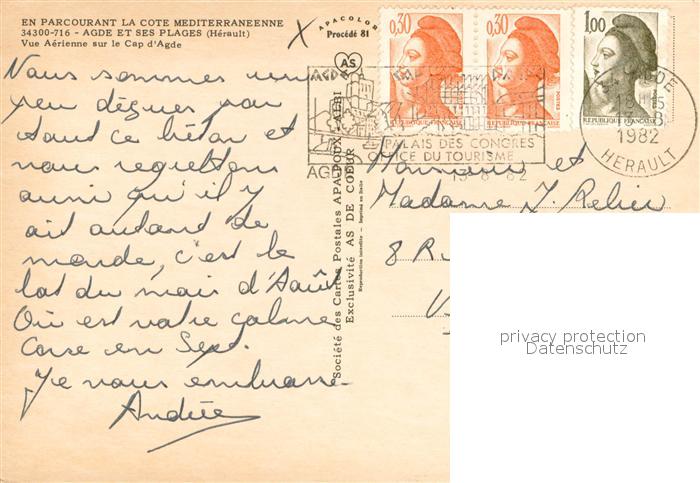 EN PARCOURANT LA COTE MEDITERRANEENNE
34300-716 - AGDE ET SES PLAGES (Hérault)
Vue Aérienne sur le Cap d'Agde
X
APACOLOR
Procédé 81
AS
Nous sommes un
peu déçues par
tout ce béton et
nous regrettons
aussi qu'il y
ait autant de
monde, c'est le
lot du mois d'Août
Où est votre calme
Corse en Sept.
Je vous embrasse
Andrée
Société des Cartes Postales APA-POUX - ALBI
Exclusivité AS DE COEUR
Reproduction interdite - Imprimé en Italie
0,30
REPUBLIQUE FRANÇAISE
0,30
REPUBLIQUE FRANÇAISE
1,00
REPUBLIQUE FRANÇAISE
AGDE
PALAIS DES CONGRES
OFFICE DU TOURISME
AGDE
13-8-82
AGDE
1982
HERAULT
Monsieur et
Madame J. Relier
8 Ru
V
privacy protection
Datenschutz